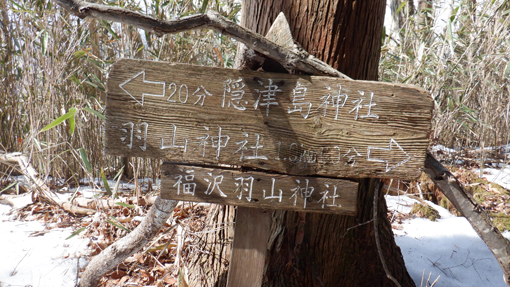 20分 隠津島神社
羽山神社
福沢羽山神社